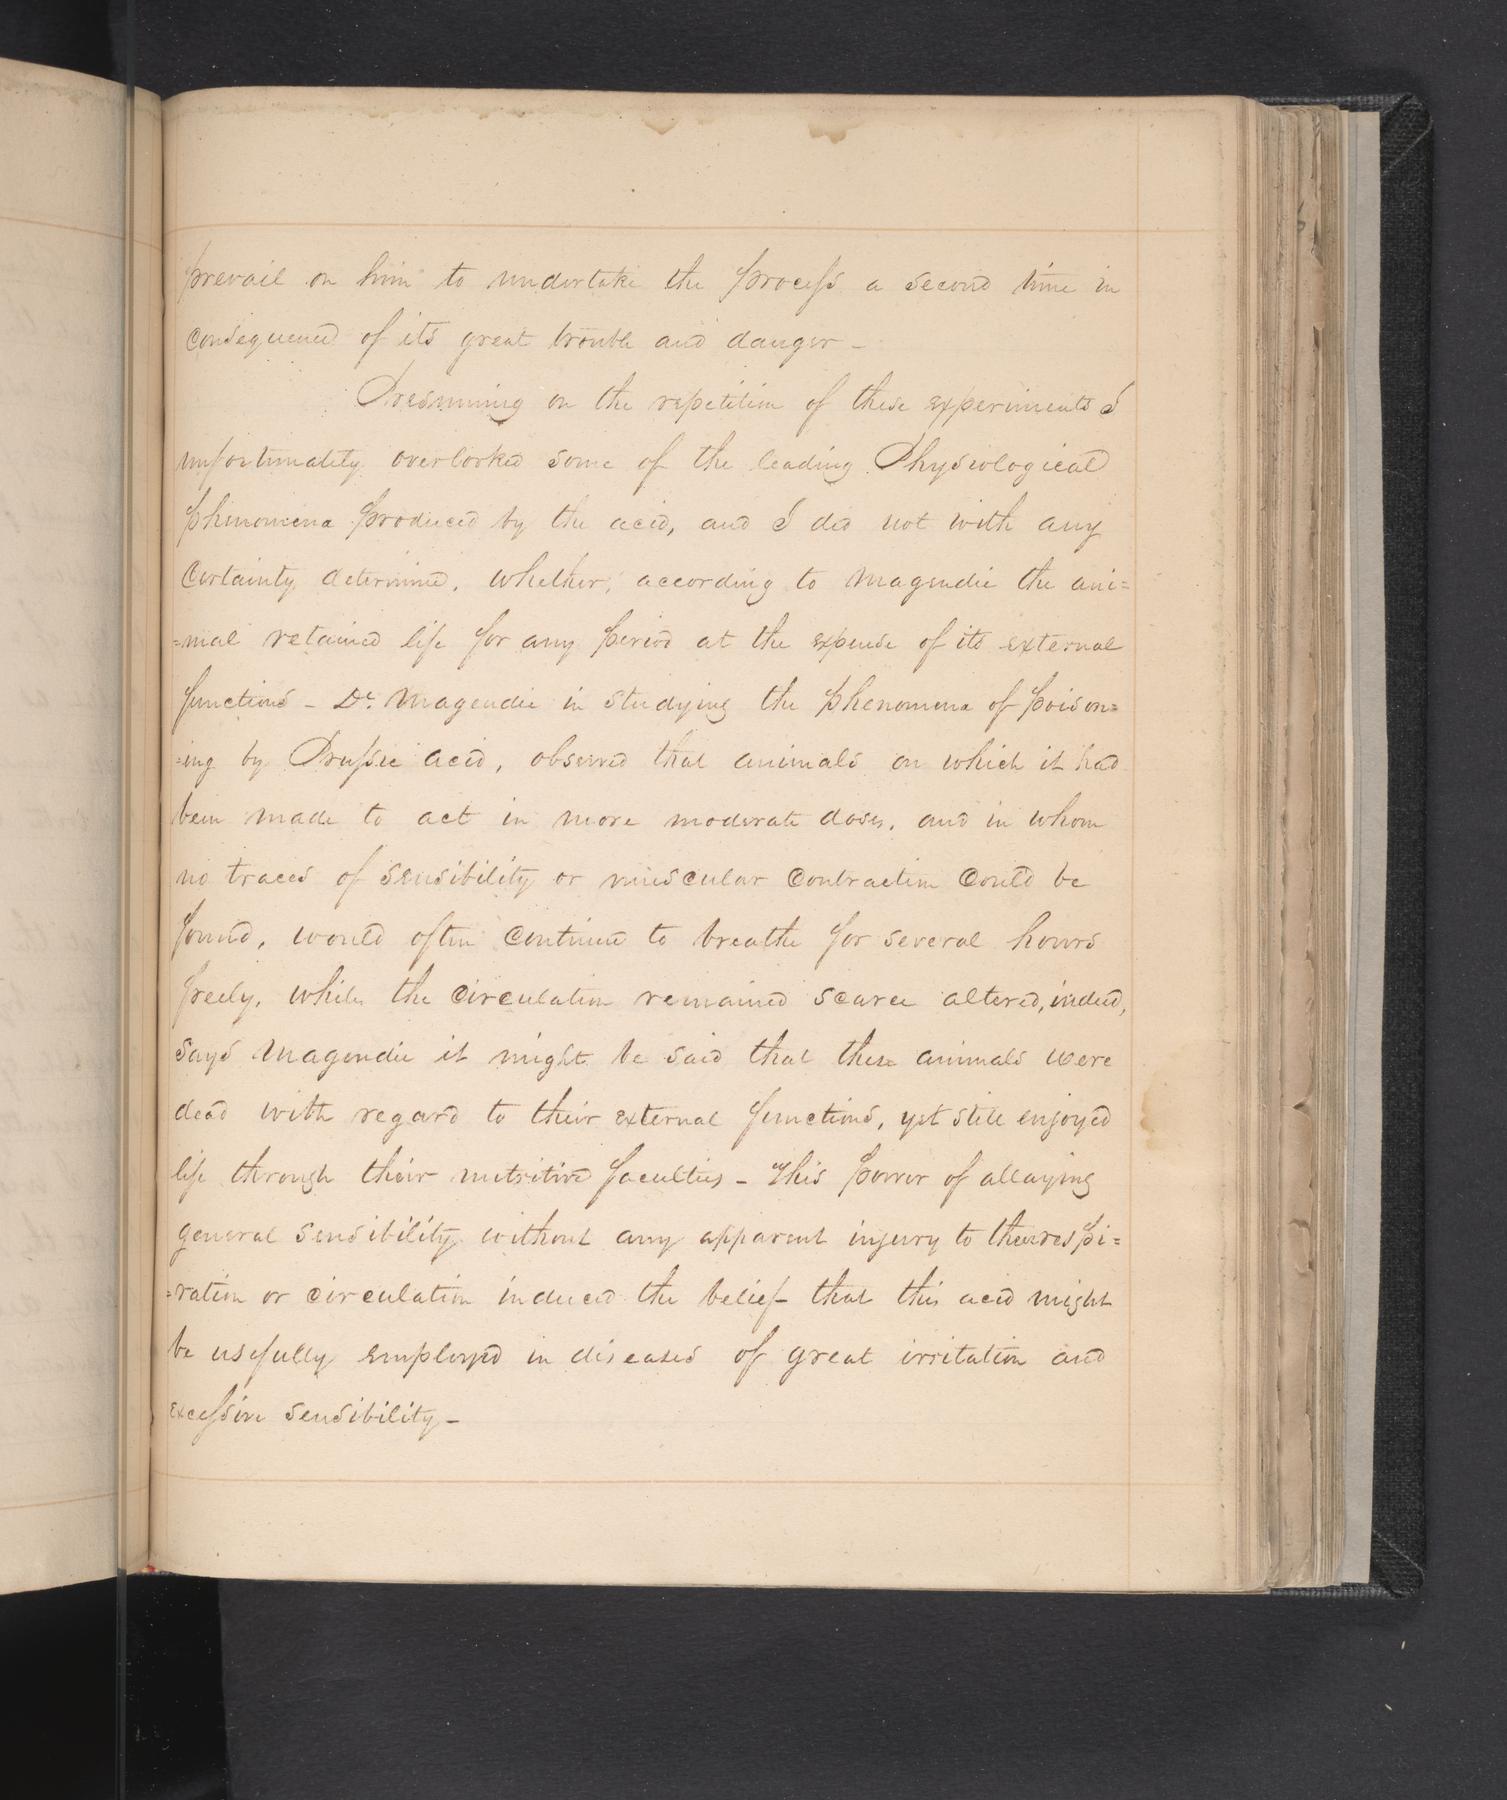 prevail on him to undertake the process a second time in
consequence of its great trouble and danger –
Presuming on the repetition of these experiments I
unfortunately overlooked some of the leading Physiological
phenomena produced by the acid, and I did not with any
certainty determine, whether, according to Magendie the ani=
=mal retained life for any period at the expense of its external
functions – Dr. Magendie in studying the phenomena of poison=
=ing by Prussic acid, observed that animals on which it had
been made to act in more moderate doses, and in whom
no traces of sensibility or muscular contraction could be
found, would often continue to breathe for several hours
freely, while the circulation remained scarce altered, indeed,
says Magendie it might be said that these animals were
dead with regard to their external functions, yet still enjoyed
life through their nutritive faculties – This power of allaying
general sensibility without any apparent injury to their respi=
=ration or circulation induced the belief that this acid might
be usefully employed in diseases of great irritation and
excessive sensibility –